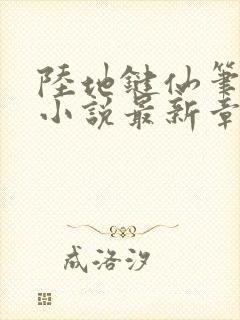 陸地鍵仙筆
小說最新章
成洛汐